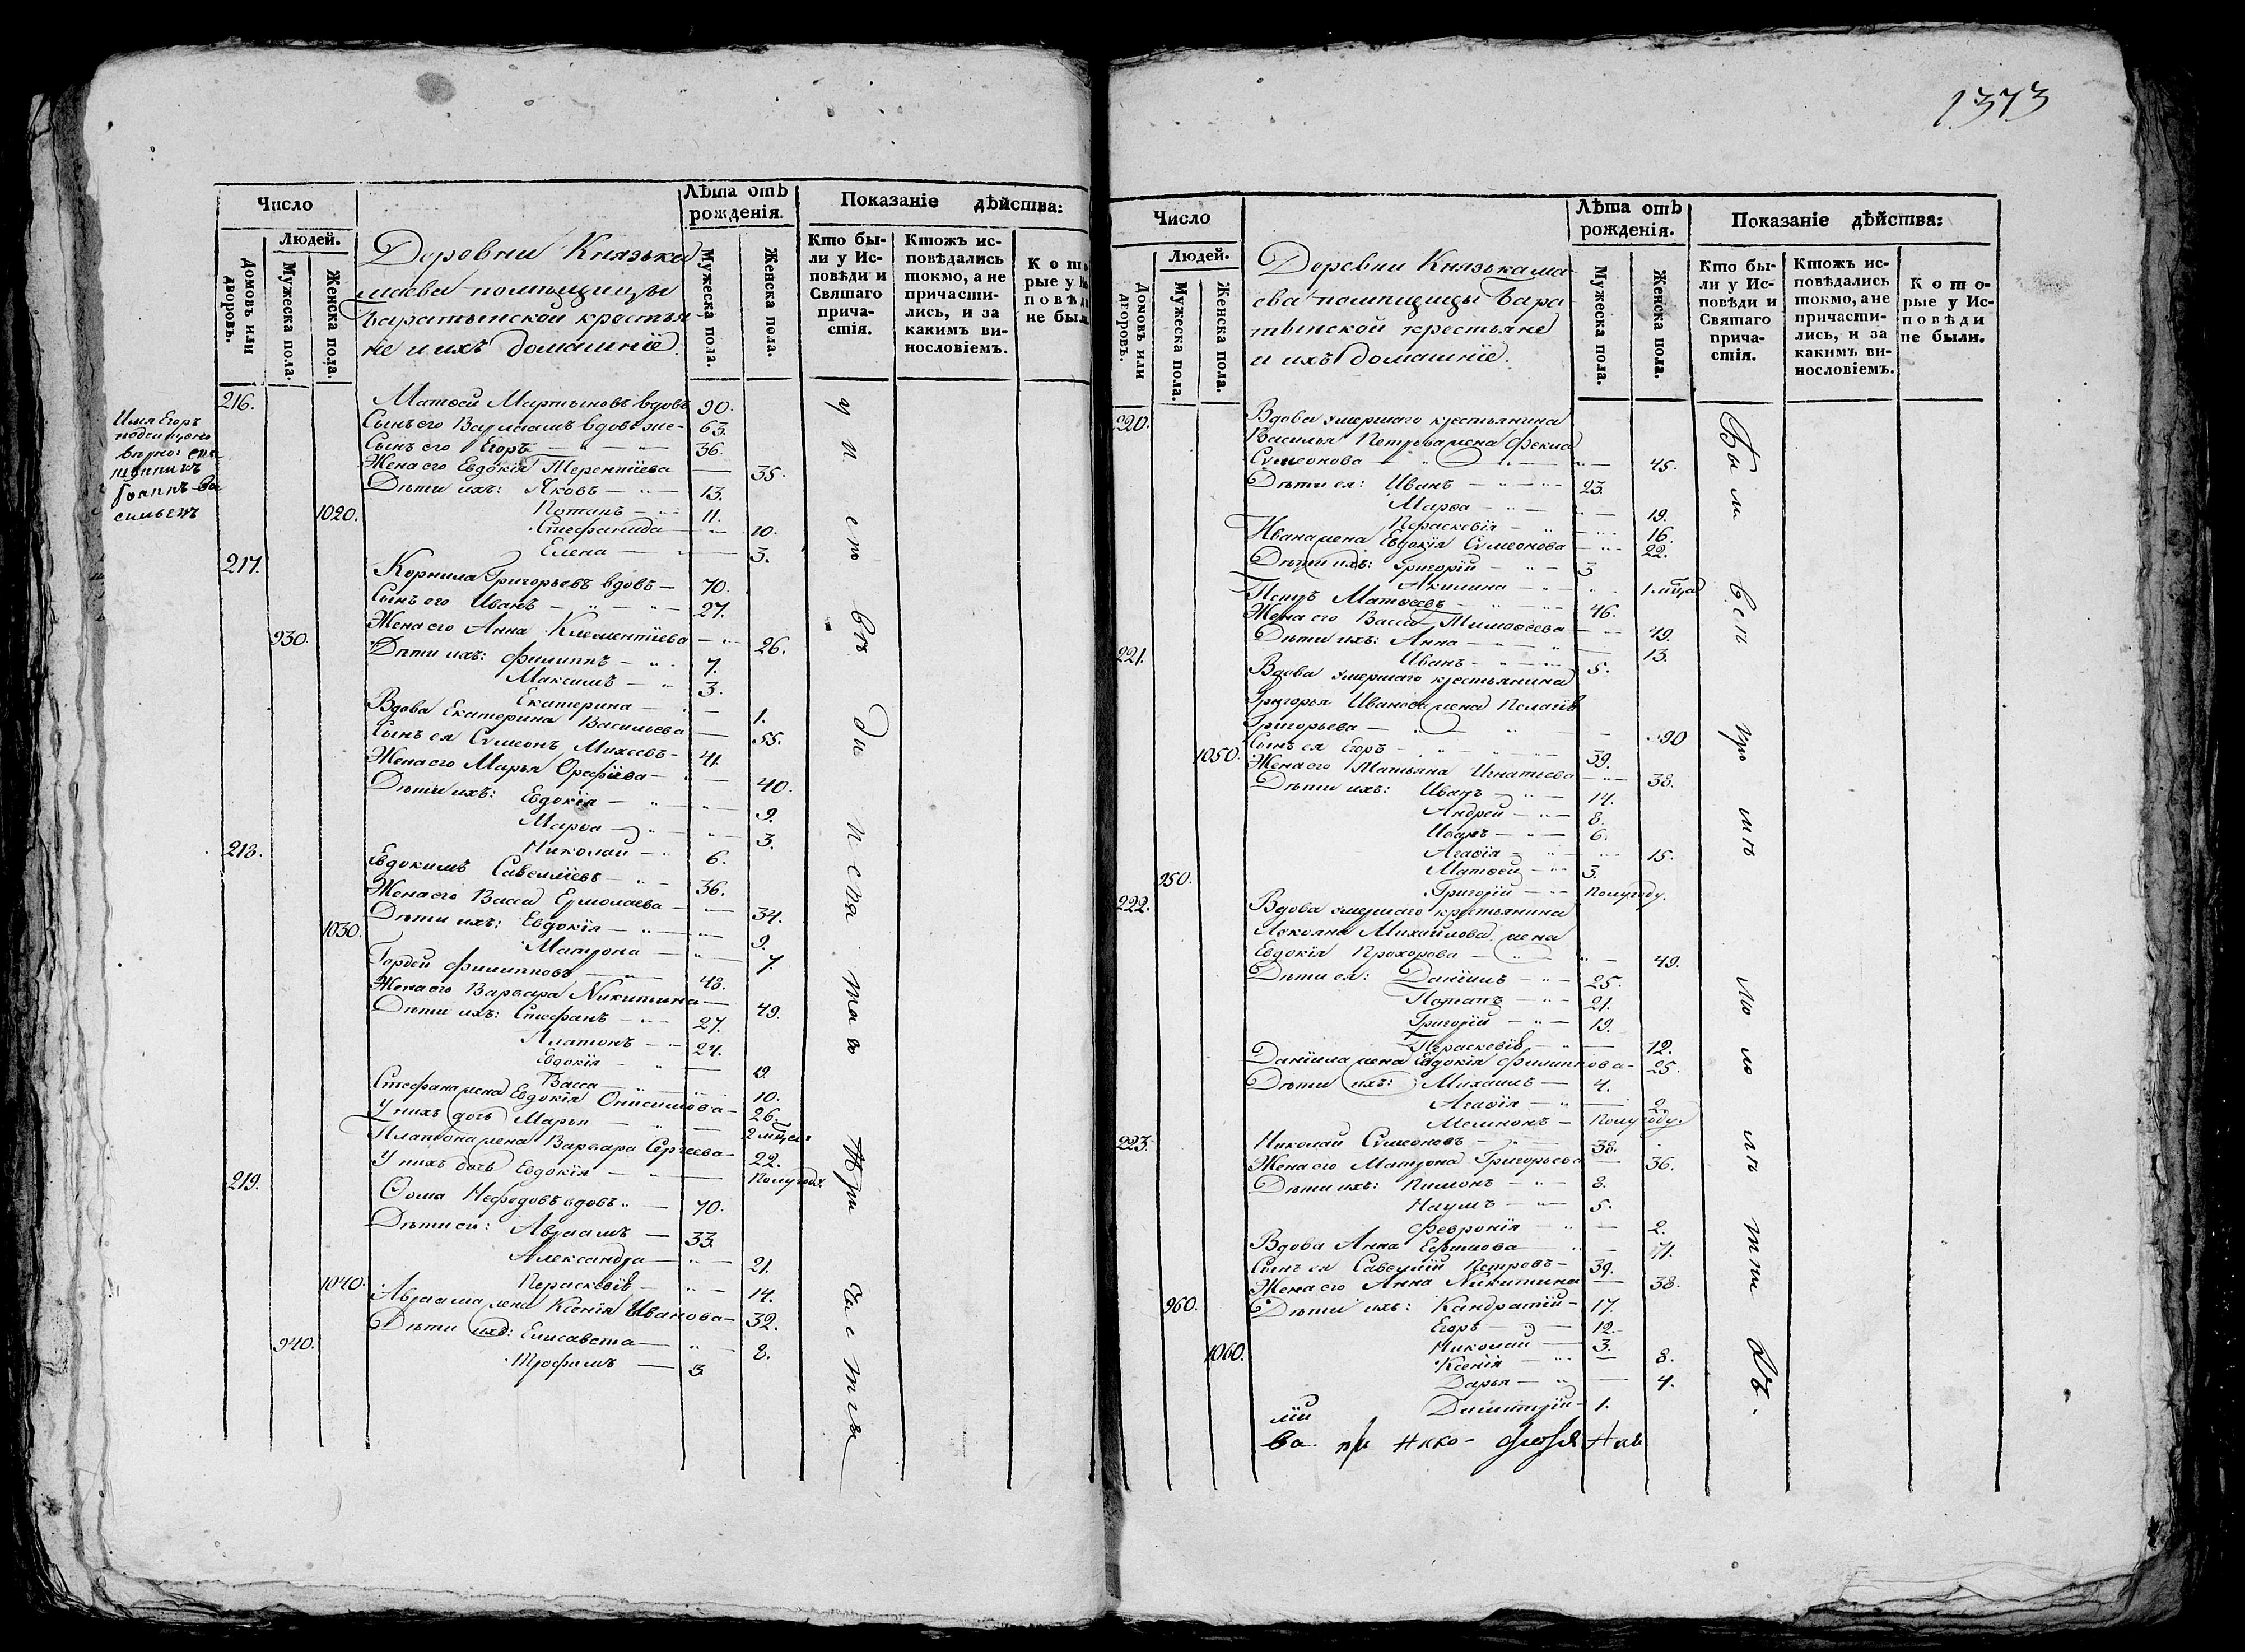 1373
Число
Людей.
Домовъ или дворовъ.
Мужеска пола.
Женска пола.
Деревни Князька
маева помѣщицы
Баратынской крестья
не и ихъ домашніе.
Лѣта отъ рожденія.
Мужеска пола.
Женска пола.
Показаніе дѣйства:
Кто были у Исповѣди и Святаго причастія.
Ктожъ исповѣдались токмо, а не причастились, и за какимъ винословіемъ.
Которые у
повѣ
не был
216. Матѳей Мартыновъ вдовъ 90.
Сынъ его Варлаамъ вдовъ же 63.
Сынъ его Егоръ 36.
Жена его Евдокія Терентіева 35.
Дѣти ихъ: Яковъ 13.
1020. Потапъ 11.
Стефанида 10.
Елена 3.
Имя Егоръ
подчищено
вѣрно: свя
щенникъ
Іоаннъ Ва
сильевъ
217. Корнила Григорьевъ вдовъ 70.
Сынъ его Иванъ 27.
930. Жена его Анна Клементіева 26.
Дѣти ихъ: Филиппъ 7.
Максимъ 3.
Екатерина 1.
Вдова Екатерина Васильева 55.
Сынъ ея Сѵмеонъ Михеевъ 41.
Жена его Марья Орефіева 40.
Дѣти ихъ: Евдокія 9.
Марѳа 3.
Николай 6.
218. Евдокимъ Савеліевъ 36.
Жена его Васса Ермолаева 34.
1030. Дѣти ихъ: Евдокія 9.
Матрона 7.
Гордей Филипповъ 48.
Жена его Варвара Никитина 49.
Дѣти ихъ: Стефанъ 27.
Платонъ 24.
Евдокія 19.
Васса 10.
Стефана жена Евдокія Онисимова 26.
У нихъ дочь Марья 2 мѣсяц:
Платона жена Варвара Сергеева 22.
У нихъ дочь Евдокія Полугода.
219. Ѳома Нефодовъ вдовъ 70.
Дѣти его: Авраамъ 33.
Александра 21.
1040. Пераскевія 14.
Авраама жена Ксенія Иванова 32.
940. Дѣти ихъ: Елисавета 8.
Трофимъ 3
у исповѣди и святаго причастія
Число
Людей.
Домовъ или дворовъ.
Мужеска пола.
Женска пола.
Деревни Князькама
ева помѣщицы Бара
тынской крестьяне
и ихъ домашніе.
Лѣта отъ рожденія.
Мужеска пола.
Женска пола.
Показаніе дѣйства:
Кто были у Исповѣди и Святаго причастія.
Ктожъ исповѣдались токмо, а не причастились, и за какимъ винословіемъ.
Которые у Исповѣди не были.
220. Вдова умершаго крестьянина
Василья Петрова жена Фекла
Сѵмеонова 45.
Дѣти ея: Иванъ 23.
Марѳа 19.
Пераскевія 16.
Ивана жена Евдокія Сѵмеонова 22.
Дѣти ихъ: Григорій 3
Акилина 1 мѣсяц
Петръ Матѳеевъ 46.
Жена его Васса Тимофеева 49.
Дѣти ихъ: Анна 13.
221. Иванъ 5.
Вдова умершаго крестьянина
Григорья Иванова жена Пелагія
Григорьева 90
Сынъ ея Егоръ 39.
1050. Жена его Татьяна Игнатіева 38.
Дѣти ихъ: Иванъ 14.
Андрей 8.
Иванъ 6.
Агафія 15.
Матѳей 3.
950. Григорій полугоду.
222. Вдова умершаго крестьянина
Лукояна Михайлова жена
Евдокія Прохорова 49.
Дѣти ея: Даніилъ 25.
Потапъ 21.
Григорій 19.
Пераскевія 12.
Даніила жена Евдокія Филиппова 25.
Дѣти ихъ: Михаилъ 4.
Агафія 2.
полугоду.
223. Николай Сѵмеоновъ 38.
Жена его Матрона Григорьева 36.
Дѣти ихъ: Пименъ 8.
Наумъ 5.
Февронія 2.
Вдова Анна Ефимова 71.
Сынъ ея Савелій Петровъ 39.
Жена его Анна Никитина 38.
960. Дѣти ихъ: Кондратій 17.
Егоръ 12.
1060. Николай 3.
Ксенія 8.
Дарья 4.
Димитрій 1.
Были всѣ
ва при Нико